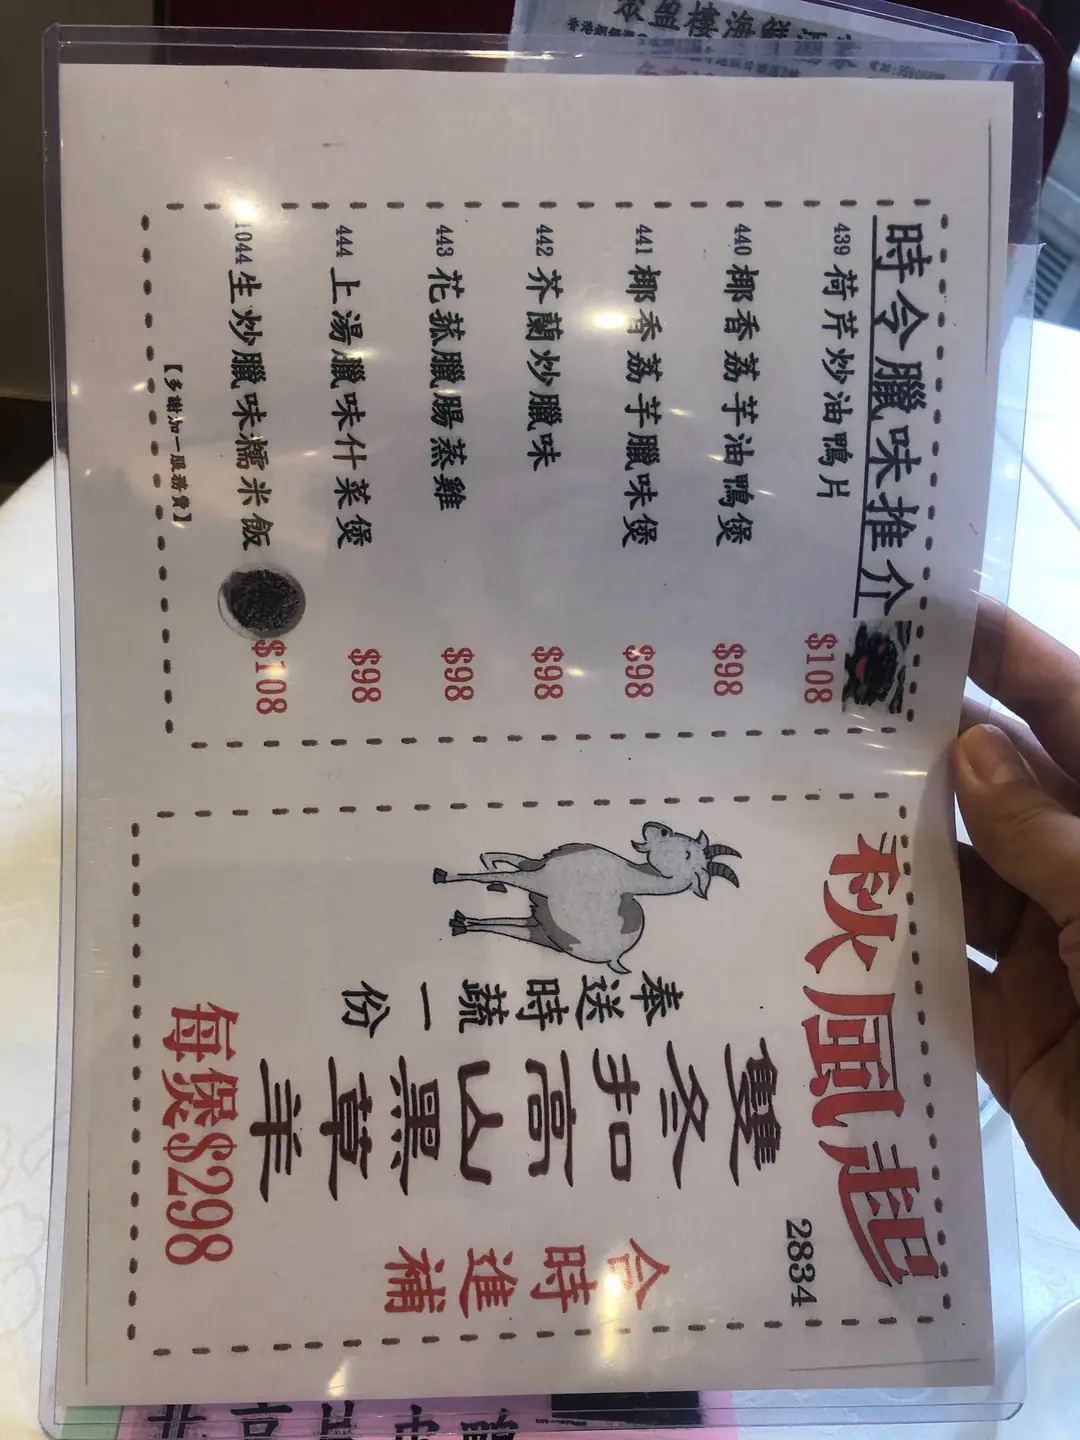 時令臘味推介
439 荷芹炒油鴨片 $108
440 椰香荔芋油鴨煲 $98
441 椰香荔芋臘味煲 $98
442 芥蘭炒臘味 $98
443 花菰臘腸蒸雞 $98
444 上湯臘味什菜煲 $98
1044 生炒臘味糯米飯 $108
【多謝加一服務費】
秋風起
2834
雙冬扣高山黑草羊
奉送時蔬一份
合時進補
每煲$298